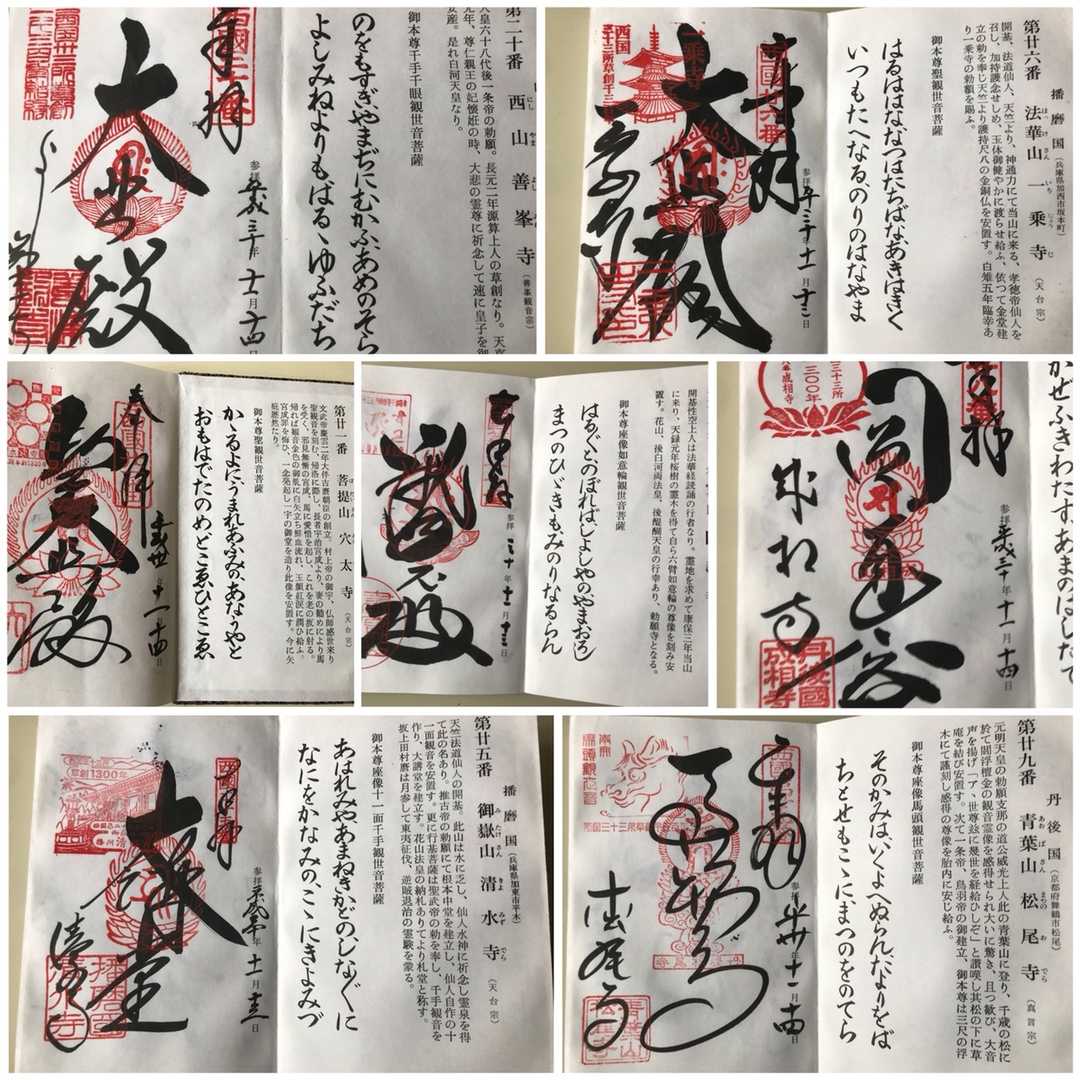 第二十番 西山 善峯寺（善峯観音宗）
にし やま よし みね でら
皇六十八代後一条帝の勅願。長元二年源算上人の草創なり。
元年、尊仁親王の妃懐妊の時、大悲の霊尊に祈念して速に皇子を御
安産。是れ白河天皇なり。
御本尊千手千眼観世音菩薩
のをもすぎやまぢにむかふ、あめのそら
よしみねよりもはるゝゆふだち
奉拝
参拝 平成三十年 十一月 十四日
大悲殿
第廿六番 播磨国（兵庫県加西市坂本町）
法華山 一乗寺（天台宗）
ほっ け さん いち じょう じ
開基、法道仙人、天竺より、神通力にて当山に来る、孝徳帝仙人を
召し、加持護念せしめ、玉体御健やかに渡らせ給ふ、依つて金堂建
立の勅を奉じ天竺より護持尺八の金銅仏を安置す。白雉五年臨幸あ
り一乗寺の勅額を賜ふ。
御本尊聖観世音菩薩
はるははな、なつはたちばな、あきはきく
いつもたへなるのりのはなやま
奉拝
参拝 平成三十年 十一月 十三日
大悲閣
一乗寺
西国三十三所草創千三百年
第廿一番 菩提山 穴太寺（天台宗）
文武帝慶雲二年大伴古麿朝臣の創立。村上帝の御宇、仏師感世来り
聖観音を刻む、帰洛に際し、長者宇治宮成より、妻の勧めにより馬
を受く、邪見無慚の宮成、馬に愛惜を起し、これを老の坂に射る。
帰れば観音金色の御肌に白矢立ち鮮血流れ、玉顔紅涙に潤ひ給ふ。
宮成罪を悔ひ、一念発起し一宇の御堂を造り此像を安置す。今に矢
疵歴然たり。
御本尊聖観世音菩薩
かゝるよにうまれあふみのあなうやと
おもはでたのめとこゑひとこゑ
奉拝
平成三十年 十一月 十四日
聖大悲殿
開基性空上人は法華経読誦の行者なり。霊地を求めて康保三年当山
に来り、天禄元年桜樹の霊木を得て自ら六臂如意輪の尊像を刻み安
置す。花山、後白河両法皇、後醍醐天皇の行幸あり、勅願寺となる。
御本尊座像如意輪観世音菩薩
はるばるとのぼれば、しよしやのやまおろし
まつのひゞきもみのりなるらん
奉拝
参拝 三十年 十一月 十三日
摩尼殿
かぜふきわたす、あまのはしだて
奉拝
参拝 平成三十年 十一月 十四日
圓通閣
成相寺
三十三所
一三〇〇年
丹後國成相寺
第廿五番 播磨国（兵庫県加東市平木）
御嶽山 清水寺（天台宗）
み たけ さん きよ みず でら
天竺法道仙人の開基。此山は水に乏し、仙人水神に祈念し霊泉を得
て此の名あり。推古帝の勅願にて根本中堂を建立し、仙人自作の十
一面観音を安置す。更に行基菩薩は聖武帝の勅を奉じ、千手観音を
作り、大講堂を建立す。花山法皇の納札ありてより札堂と称す。
坂上田村麿は月参して東夷征伐、逆賊退治の霊験を蒙る。
御本尊座像十一面千手観世音菩薩
あはれみやあまねきかどのしなじなに
なにをかなみのこゝにきよみづ
奉拝
参拝 平成三十年 十一月 十三日
大講堂
清水寺
草創1300年
第廿九番 丹後国（京都府舞鶴市松尾）
青葉山 松尾寺（真言宗）
あお ば さん まつの お でら
元明天皇の勅願支那の道公威光上人此の青葉山に登り、千歳の松に
於て閻浮檀金の観音霊像を感得せられ大いに驚き、且つ歓び、大音
声を揚げ「ア、世尊玆に幾世を経給ひしぞ」と讃嘆し其松の下に草
庵を結び安置す。次で一条帝、鳥羽帝の御建立、御本尊は三尺の浮
木にて謹刻し感得の尊像を胎内に安じ給ふ。
御本尊座像馬頭観世音菩薩
そのかみはいくよへぬらんたよりをば
ちとせもこゝにまつのをのてら
奉拝
参拝 平成三十年 十一月 十四日
松尾寺